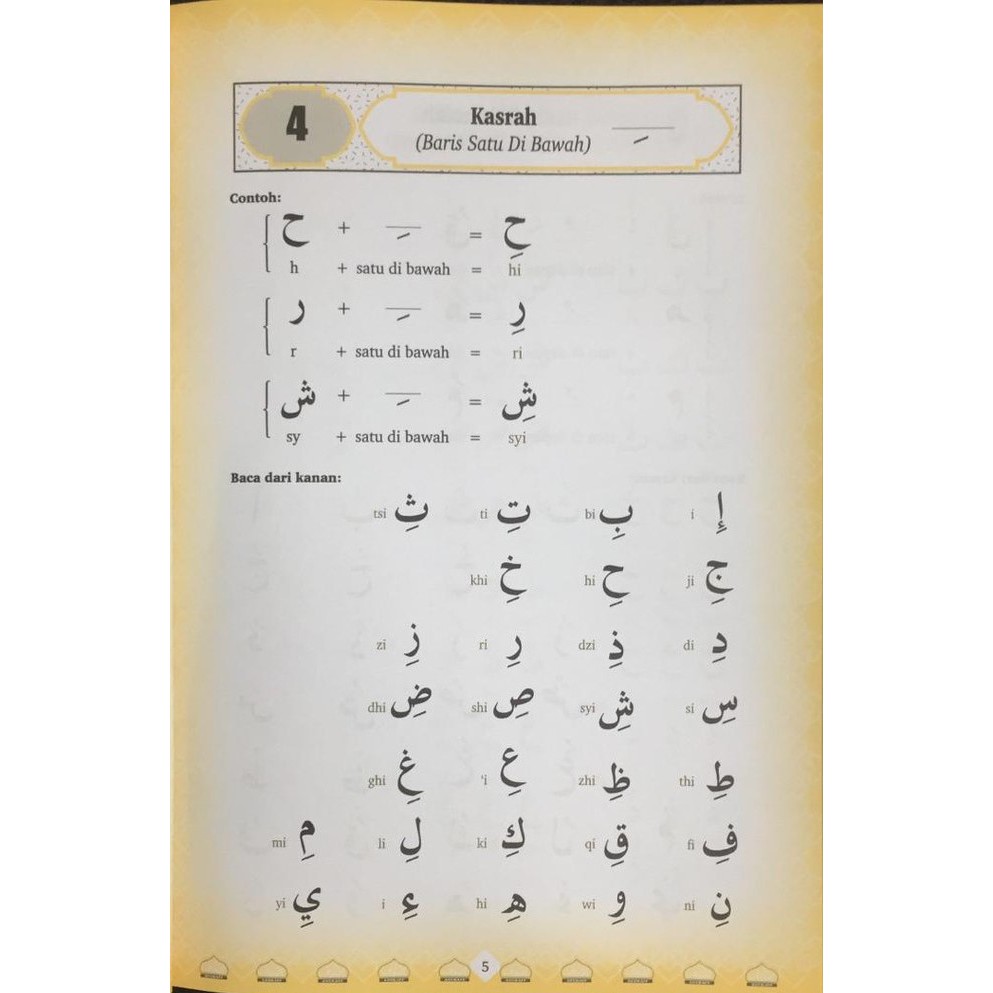 4
Kasrah ـِ
(Baris Satu Di Bawah)
Contoh:
ح + ـِ = حِ
h + satu di bawah = hi
ر + ـِ = رِ
r + satu di bawah = ri
ش + ـِ = شِ
sy + satu di bawah = syi
Baca dari kanan:
إِ i بِ bi تِ ti ثِ tsi
جِ ji حِ hi خِ khi
دِ di ذِ dzi رِ ri زِ zi
سِ si شِ syi صِ shi ضِ dhi
طِ thi ظِ zhi عِ 'i غِ ghi
فِ fi قِ qi كِ ki لِ li مِ mi
نِ ni وِ wi هِ hi ءِ i يِ yi
5